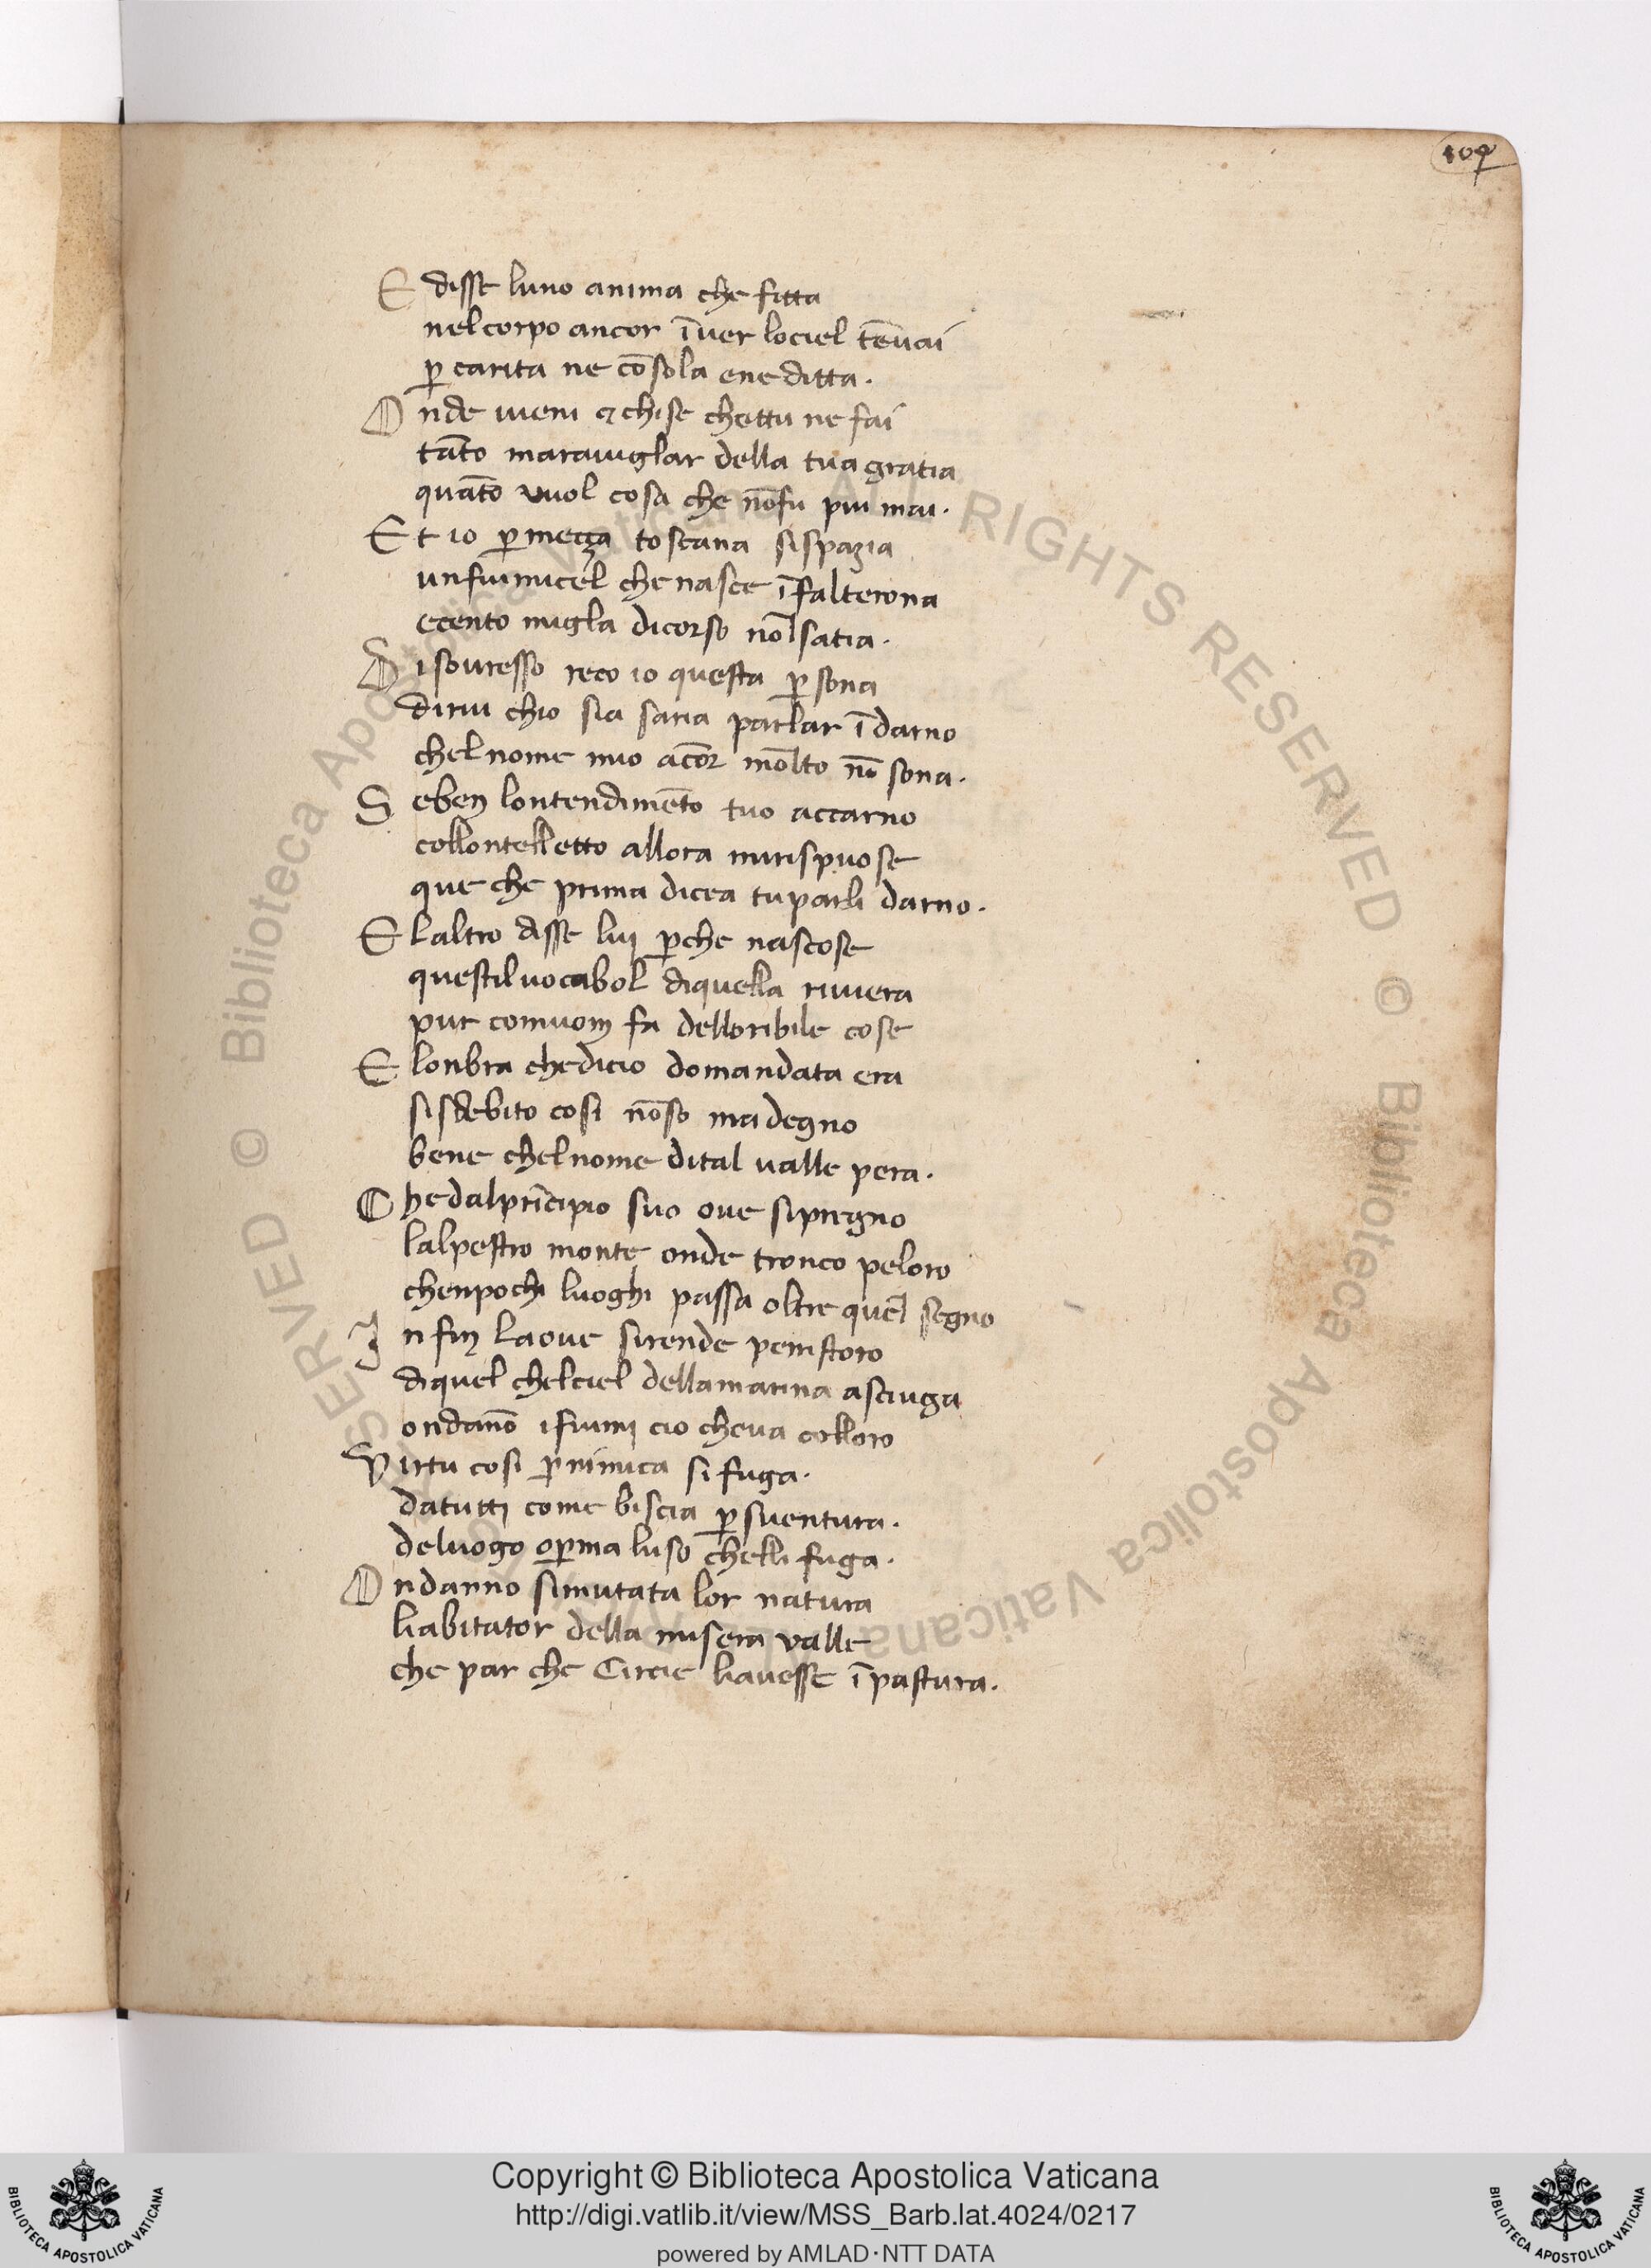 109
E disse luno anima che fitta
nelcorpo ancor ī uer lociel tēuai
ꝑ carita ne cōsola ene ditta.
O nde uieni ⁊ chise chettu ne fai
tāto marauiglar della tua gratia
quāto vuol cosa che nōfu piu mai.
E t io ꝑ mecça toscana sispazia
unfiumicel che nasce ī falterona
ecento migla dicorso nōl satia.
D isouresso reco io questa ꝑsona
dirui chio sia saria parlar īdarno
chelnome mio ācor molto nō sona.
S eben lontendimēto tuo accarno
collontelletto allora mirispuose
que che prima dicea tuparli darno.
E laltro disse lui ꝑche nascose
questiluocabol diquella riuiera
pur comuom fa delloribile cose
E lonbra chedicio domandata era
sisdebito cosi nōso ma degno
bene chelnome dital ualle pera.
C hedalprīcipio suo oue sipregno
lalpestro monte onde tronco peloro
chenpochi luoghi passa oltre quel segno
I nfin laoue sirende penistoro
diquel chelciel dellamarina asciuga
ondānō ifiumi cio cheua colloro
V irtu cosi ꝑ nimica si fuga.
datutti come biscia ꝑ suentura.
deluogo oꝑ mal uso chelli fuga.
O ndanno simutata lor natura
liabitator della misera valle
che par che Circie liauesse īpastura.
Copyright © Biblioteca Apostolica Vaticana
http://digi.vatlib.it/view/MSS_Barb.lat.4024/0217
powered by AMLAD·NTT DATA
BIBLIOTECA APOSTOLICA VATICANA
BIBLIOTECA APOSTOLICA VATICANA